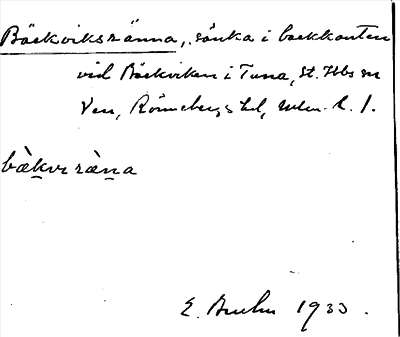 Bäckviksränna, sänka i backkanten
vid Bäckviken i Tuna, St. Ibbs sn
Ven, Rönnebergs hd, Mlm. l.
bæ̀kvɪræ̀na
E. Bruhn 1933.